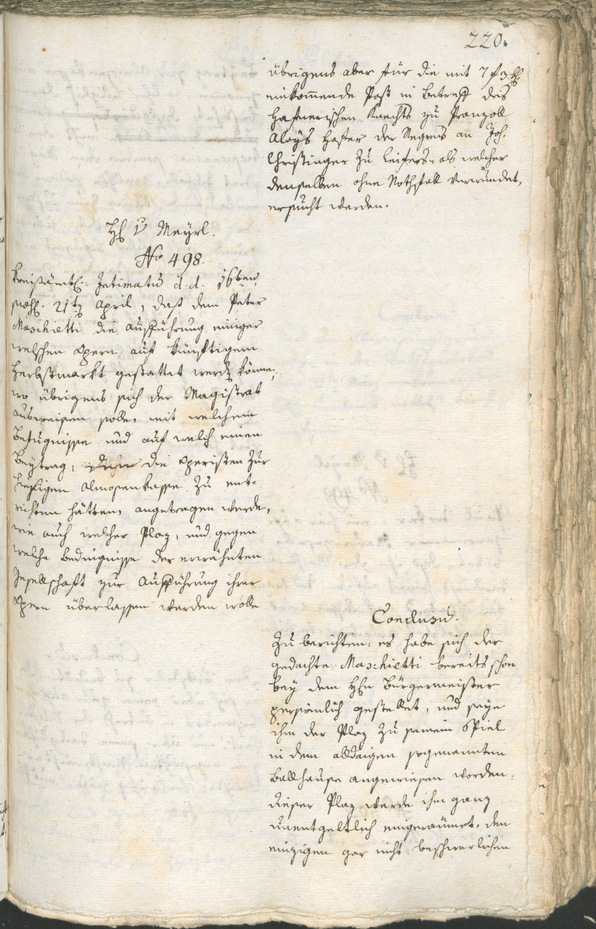 220.
übrigens aber für die mit 7 f 3 x
einkommende Post in Betreff des
Haferischen Knechts zu Pranzoll
Aloys Hafer der Regress an Joh.
Christinger zu Leifers, als welcher
denselben ohne Nothfall verwundet,
ersucht werden.
H v Meyrl.
No 498.
Kreisämtl. Intimatum d. d. 16ten
21ten April, daß dem Peter
Maschietti die Aufführung einiger
welschen Opern auf künftigem
Herbstmarkt gestattet werden könne,
wo übrigens sich der Magistrat
ausweisen solle, mit welchem
Befugnisse und auf welch einen
Beytrag, die Operisten zur
hiesigen Almosenkasse zu ent-
richten hätten, angetragen werde,
wie auch welcher Plaz, und gegen
welche Bedingnisse der erwähnten
Gesellschaft zur Aufführung ihrer
Opern überlassen werden wolle
Conclusum.
Zu berichten, es habe sich der
gedachte Maschietti bereits schon
bey dem Hrn Bürgermeister
persönlich gestellet, und seye
ihm der Plaz zu seinem Spiel
in dem alldaigen sogenannten
Ballhause angewiesen worden.
dieser Plaz werde ihm ganz
unentgeltlich eingeräumt, den
einzigen gar nicht beschwerlichen